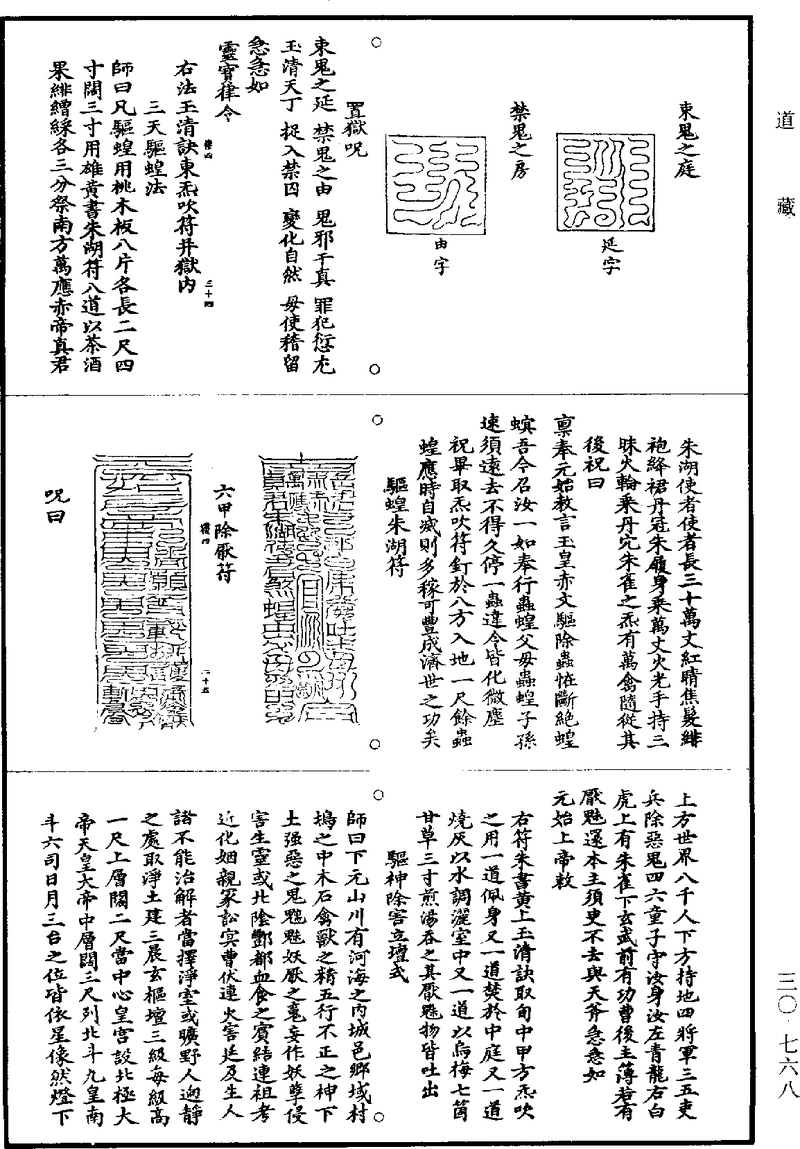 道藏
三〇·七六八
束鬼之庭
延字
禁鬼之房
由字
置獄呪
束鬼之延 禁鬼之由 鬼邪干真 罪犯愆尤
玉清天丁 捉入禁囚 變化自然 毋使稽留
急急如
靈寶律令
右法玉清訣東炁吹符并獄內
三十四
三天驅蝗法
師曰凡驅蝗用桃木板八片各長二尺四
寸闊三寸用雄黃書朱湖符八道以茶酒
果緋繒綵各三分祭南方萬應赤帝真君
朱湖使者使者長三十萬丈紅睛焦髮緋
袍絳裙丹冠朱履身乘萬丈火光手持三
昧火輪乘丹穴朱雀之炁有萬禽隨從其
後祝曰
稟奉元始教言玉皇赤文驅除蟲怪斷絕蝗
螟吾今召汝一如奉行蟲蝗父母蟲蝗子孫
速須遠去不得久停一蟲違令皆化微塵
祝畢取炁吹符釘於八方入地一尺餘蟲
蝗應時自滅則多稼可豐成濟世之功矣
驅蝗朱湖符
六甲除厭符
呪曰
上方世界八千人下方持地四將軍三五吏
兵除惡鬼四六童子守汝身汝左青龍右白
虎上有朱雀下玄武前有功曹後主薄若有
厭魅還本主須臾不去與天斧急急如
元始上帝敕
右符朱書黃上玉清訣取旬中甲方炁吹
之用一道佩身又一道焚於中庭又一道
燒灰以水調灑室中又一道以烏梅七箇
甘草三寸煎湯吞之其厭魅物皆吐出
驅神除害立壇式
師曰下元山川有河海之內城邑鄉域村
塢之中木石禽獸之精五行不正之神下
土强惡之鬼魍魅妖厭之毫妄作妖孽侵
害生靈或北陰酆都血食之賓結連祖考
近化姻親冢訟冥曹伏連火害延及生人
諸不能治解者當擇淨室或曠野人跡靜
之處取淨土建三晨玄樞壇三級每級高
一尺上層闊二尺當中心皇宮設北極大
帝天皇大帝中層闊三尺列北斗九皇南
斗六司日月三台之位皆依星像然燈下